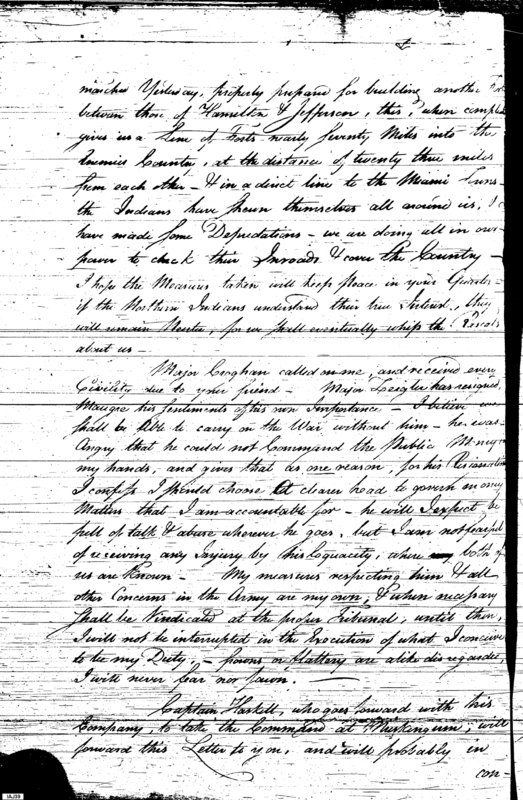 marched Yesterday, properly prepared for building another
between those of Hamilton & Jefferson, this, when
gives us a Line of Forts nearly Seventy Miles into the
Enemies Country, at the distance of twenty three miles
from each other – & in a direct line to the Miami Towns
the Indians have shewn themselves all around us,
have made some Depredations – we are doing all in our
power to check their Inroads & cover the Country –
I hope the Measures taken will keep Peace in your Quarter –
if the Northern Indians understand their true Interest, they
will remain Neuter, for we shall eventually whip the Rascals
about us –
Major Croghan called on me, and received every
Civility due to your friend – Major Zeigler has resigned,
Maugre his Sentiments of his own Importance – I believe we
shall be Able to carry on the War without him – he was
Angry that he could not Command the Public Money
my hands, and gives that as one reason, for his Resignation
I confess I should choose a clearer head to govern in any
Matters that I am accountable for – he will I expect be
full of talk & abuse wherever he goes, but I am not fearful
of receiving any Injury by his Loquacity, where both of
us are Known – My measures respecting him & all
other Concerns in the Army are my own, & when necessary
shall be Vindicated at the proper Tribunal, until then,
I will not be interrupted in the Execution of what I conceive
to be my Duty, – frowns or flattery are alike disregarded,
I will never fear nor fawn. –
Captain Haskell, who goes forward with his
Company, to take the Command at Muskingum, will
forward this Letter to you, and will probably in
con-